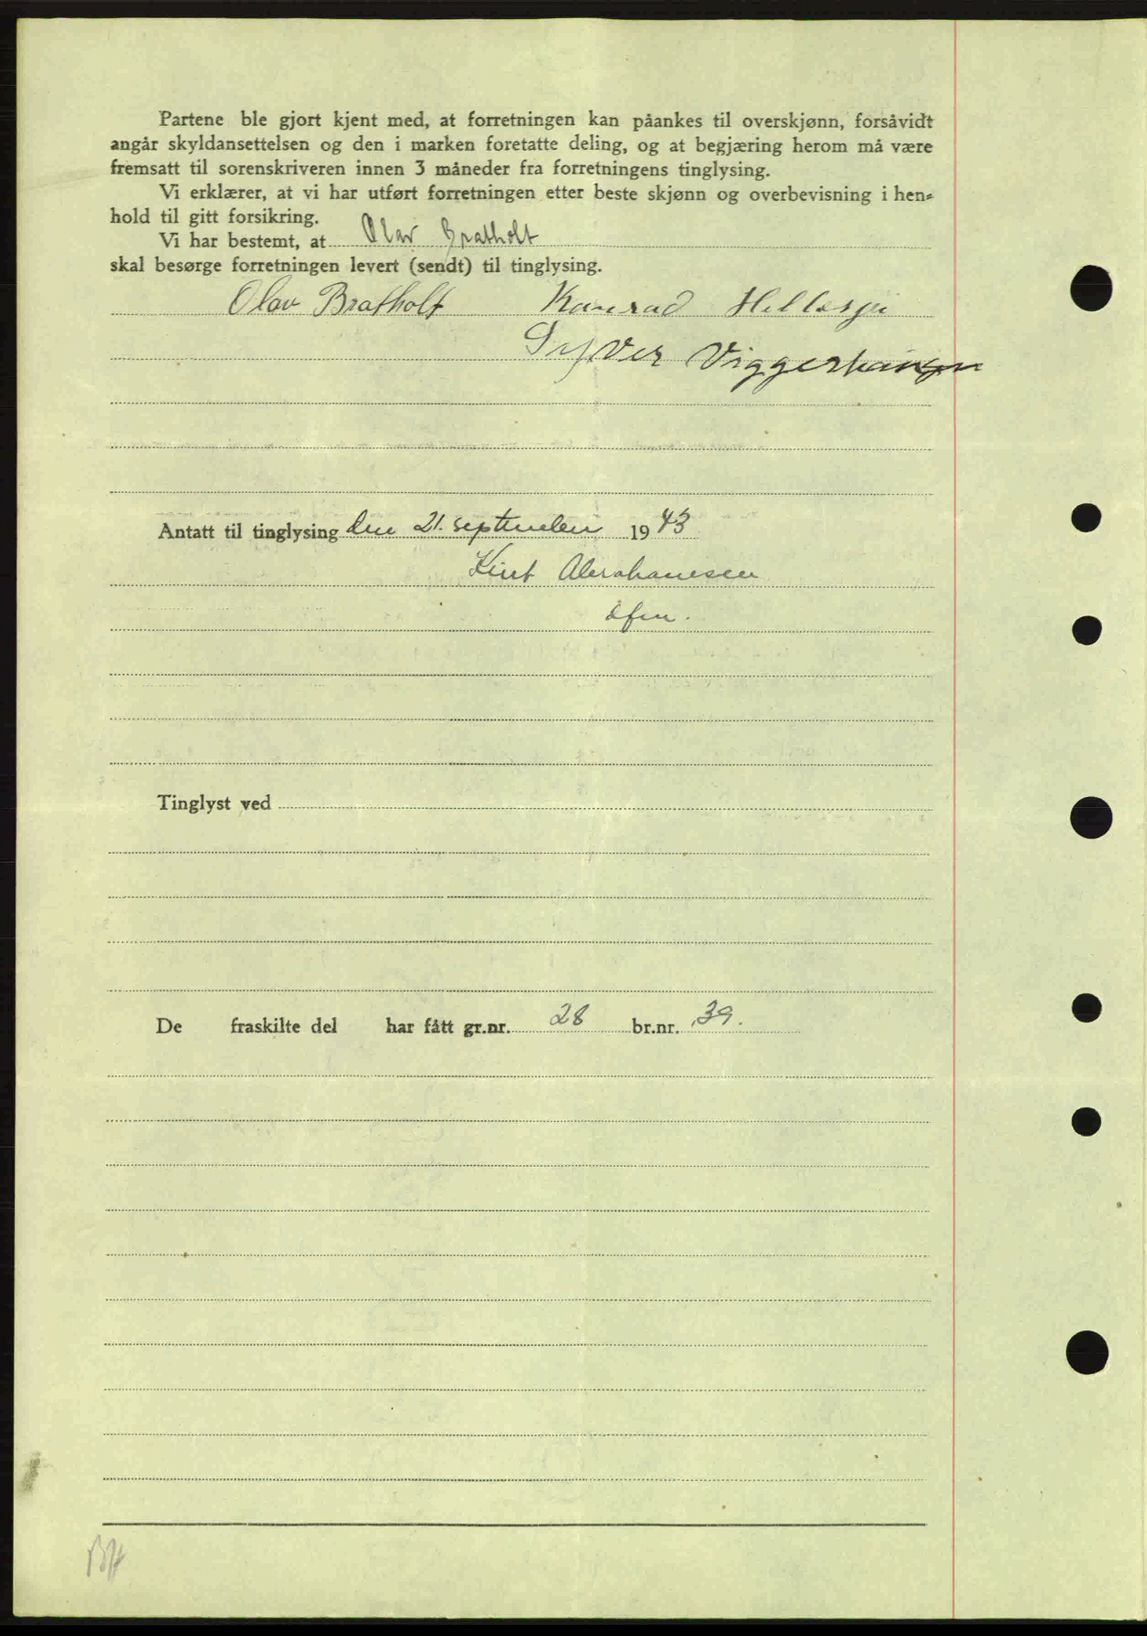 Partene ble gjort kjent med, at forretningen kan påankes til overskjønn, forsåvidt
angår skyldansettelsen og den i marken foretatte deling, og at begjæring herom må være
fremsatt til sorenskriveren innen 3 måneder fra forretningens tinglysing.
Vi erklærer, at vi har utført forretningen etter beste skjønn og overbevisning i hen-
hold til gitt forsikring.
Vi har bestemt, at Olav Bratholt
skal besørge forretningen levert (sendt) til tinglysing.
Olav Bratholt Konrad
Syver
Antatt til tinglysing den 21. september 1943
Kurt Abrahamsen
Tinglyst ved
De fraskilte del har fått gr.nr. 28 br.nr. 39.